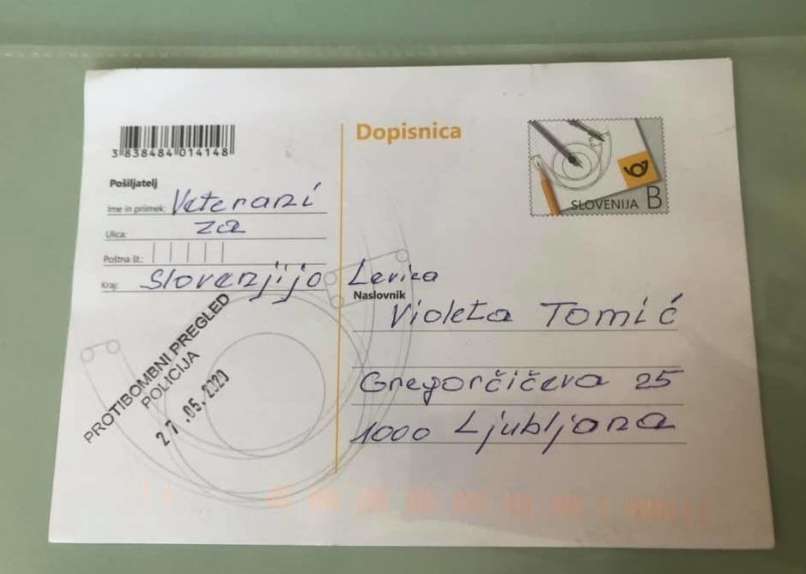 Dopisnica
3 838484 014148
SLOVENIJA B
Pošiljatelj
Ime in priimek: Veterani
Ulica: za
Poštna št.:
Kraj: Slovenjijo
Levica
Naslovnik
Violeta Tomić
Gregorčičeva 25
1000 Ljubljana
PROTIBOMBNI PREGLED
POLICIJA
27.05.2020